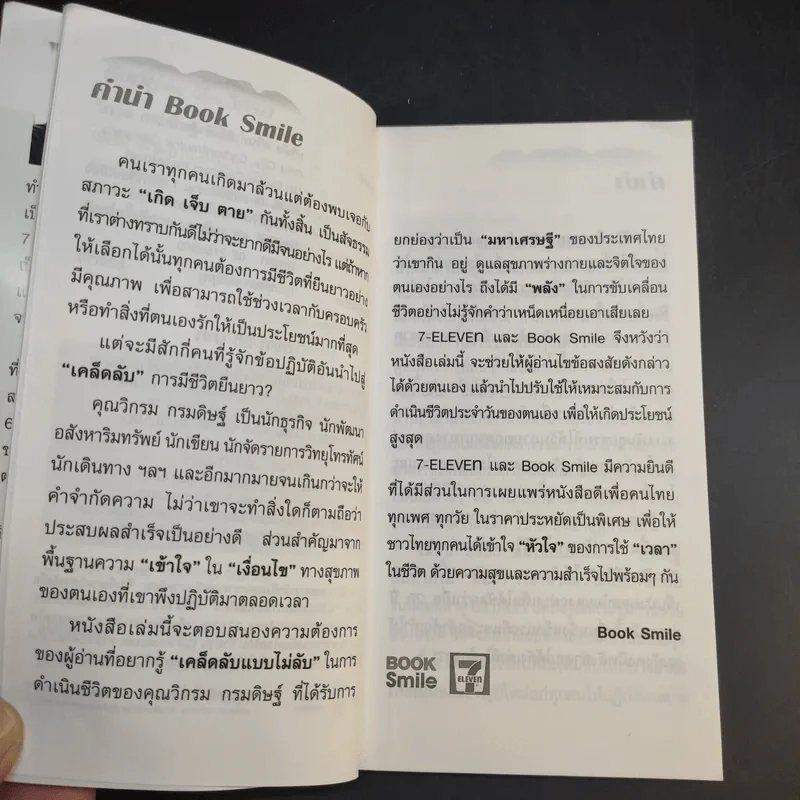 คำนำ Book Smile
คนเราทุกคนเกิดมาล้วนแต่ต้องพบเจอกับ
สภาวะ “เกิด เจ็บ ตาย” กันทั้งสิ้น เป็นสัจธรรม
ที่เราต่างทราบกันดีไม่ว่าจะยากดีมีจนอย่างไร แต่ถ้าหาก
ให้เลือกได้นั้นทุกคนต้องการมีชีวิตที่ยืนยาวอย่าง
มีคุณภาพ เพื่อสามารถใช้ช่วงเวลากับครอบครัว
หรือทำสิ่งที่ตนเองรักให้เป็นประโยชน์มากที่สุด
แต่จะมีสักกี่คนที่รู้จักข้อปฏิบัติอันนำไปสู่
“เคล็ดลับ” การมีชีวิตยืนยาว?
คุณวิกรม กรมดิษฐ์ เป็นนักธุรกิจ นักพัฒนา
อสังหาริมทรัพย์ นักเขียน นักจัดรายการวิทยุโทรทัศน์
นักเดินทาง ฯลฯ และอีกมากมายจนเกินกว่าจะให้
คำจำกัดความ ไม่ว่าเขาจะทำสิ่งใดก็ตามถือว่า
ประสบผลสำเร็จเป็นอย่างดี ส่วนสำคัญมาจาก
พื้นฐานความ “เข้าใจ” ใน “เงื่อนไข” ทางสุขภาพ
ของตนเองที่เขาพึงปฏิบัติมาตลอดเวลา
หนังสือเล่มนี้จะตอบสนองความต้องการ
ของผู้อ่านที่อยากรู้ “เคล็ดลับแบบไม่ลับ” ในการ
ดำเนินชีวิตของคุณวิกรม กรมดิษฐ์ ที่ได้รับการ
ยกย่องว่าเป็น “มหาเศรษฐี” ของประเทศไทย
ว่าเขากิน อยู่ ดูแลสุขภาพร่างกายและจิตใจของ
ตนเองอย่างไร ถึงได้มี “พลัง” ในการขับเคลื่อน
ชีวิตอย่างไม่รู้จักคำว่าเหน็ดเหนื่อยเอาเสียเลย
7-ELEVEn และ Book Smile จึงหวังว่า
หนังสือเล่มนี้ จะช่วยให้ผู้อ่านไขข้อสงสัยดังกล่าว
ได้ด้วยตนเอง แล้วนำไปปรับใช้ให้เหมาะสมกับการ
ดำเนินชีวิตประจำวันของตนเอง เพื่อให้เกิดประโยชน์
สูงสุด
7-ELEVEn และ Book Smile มีความยินดี
ที่ได้มีส่วนในการเผยแพร่หนังสือดีเพื่อคนไทย
ทุกเพศ ทุกวัย ในราคาประหยัดเป็นพิเศษ เพื่อให้
ชาวไทยทุกคนได้เข้าใจ “หัวใจ” ของการใช้ “เวลา”
ในชีวิต ด้วยความสุขและความสำเร็จไปพร้อมๆ กัน
Book Smile
BOOK
Smile
7
ELEVEn